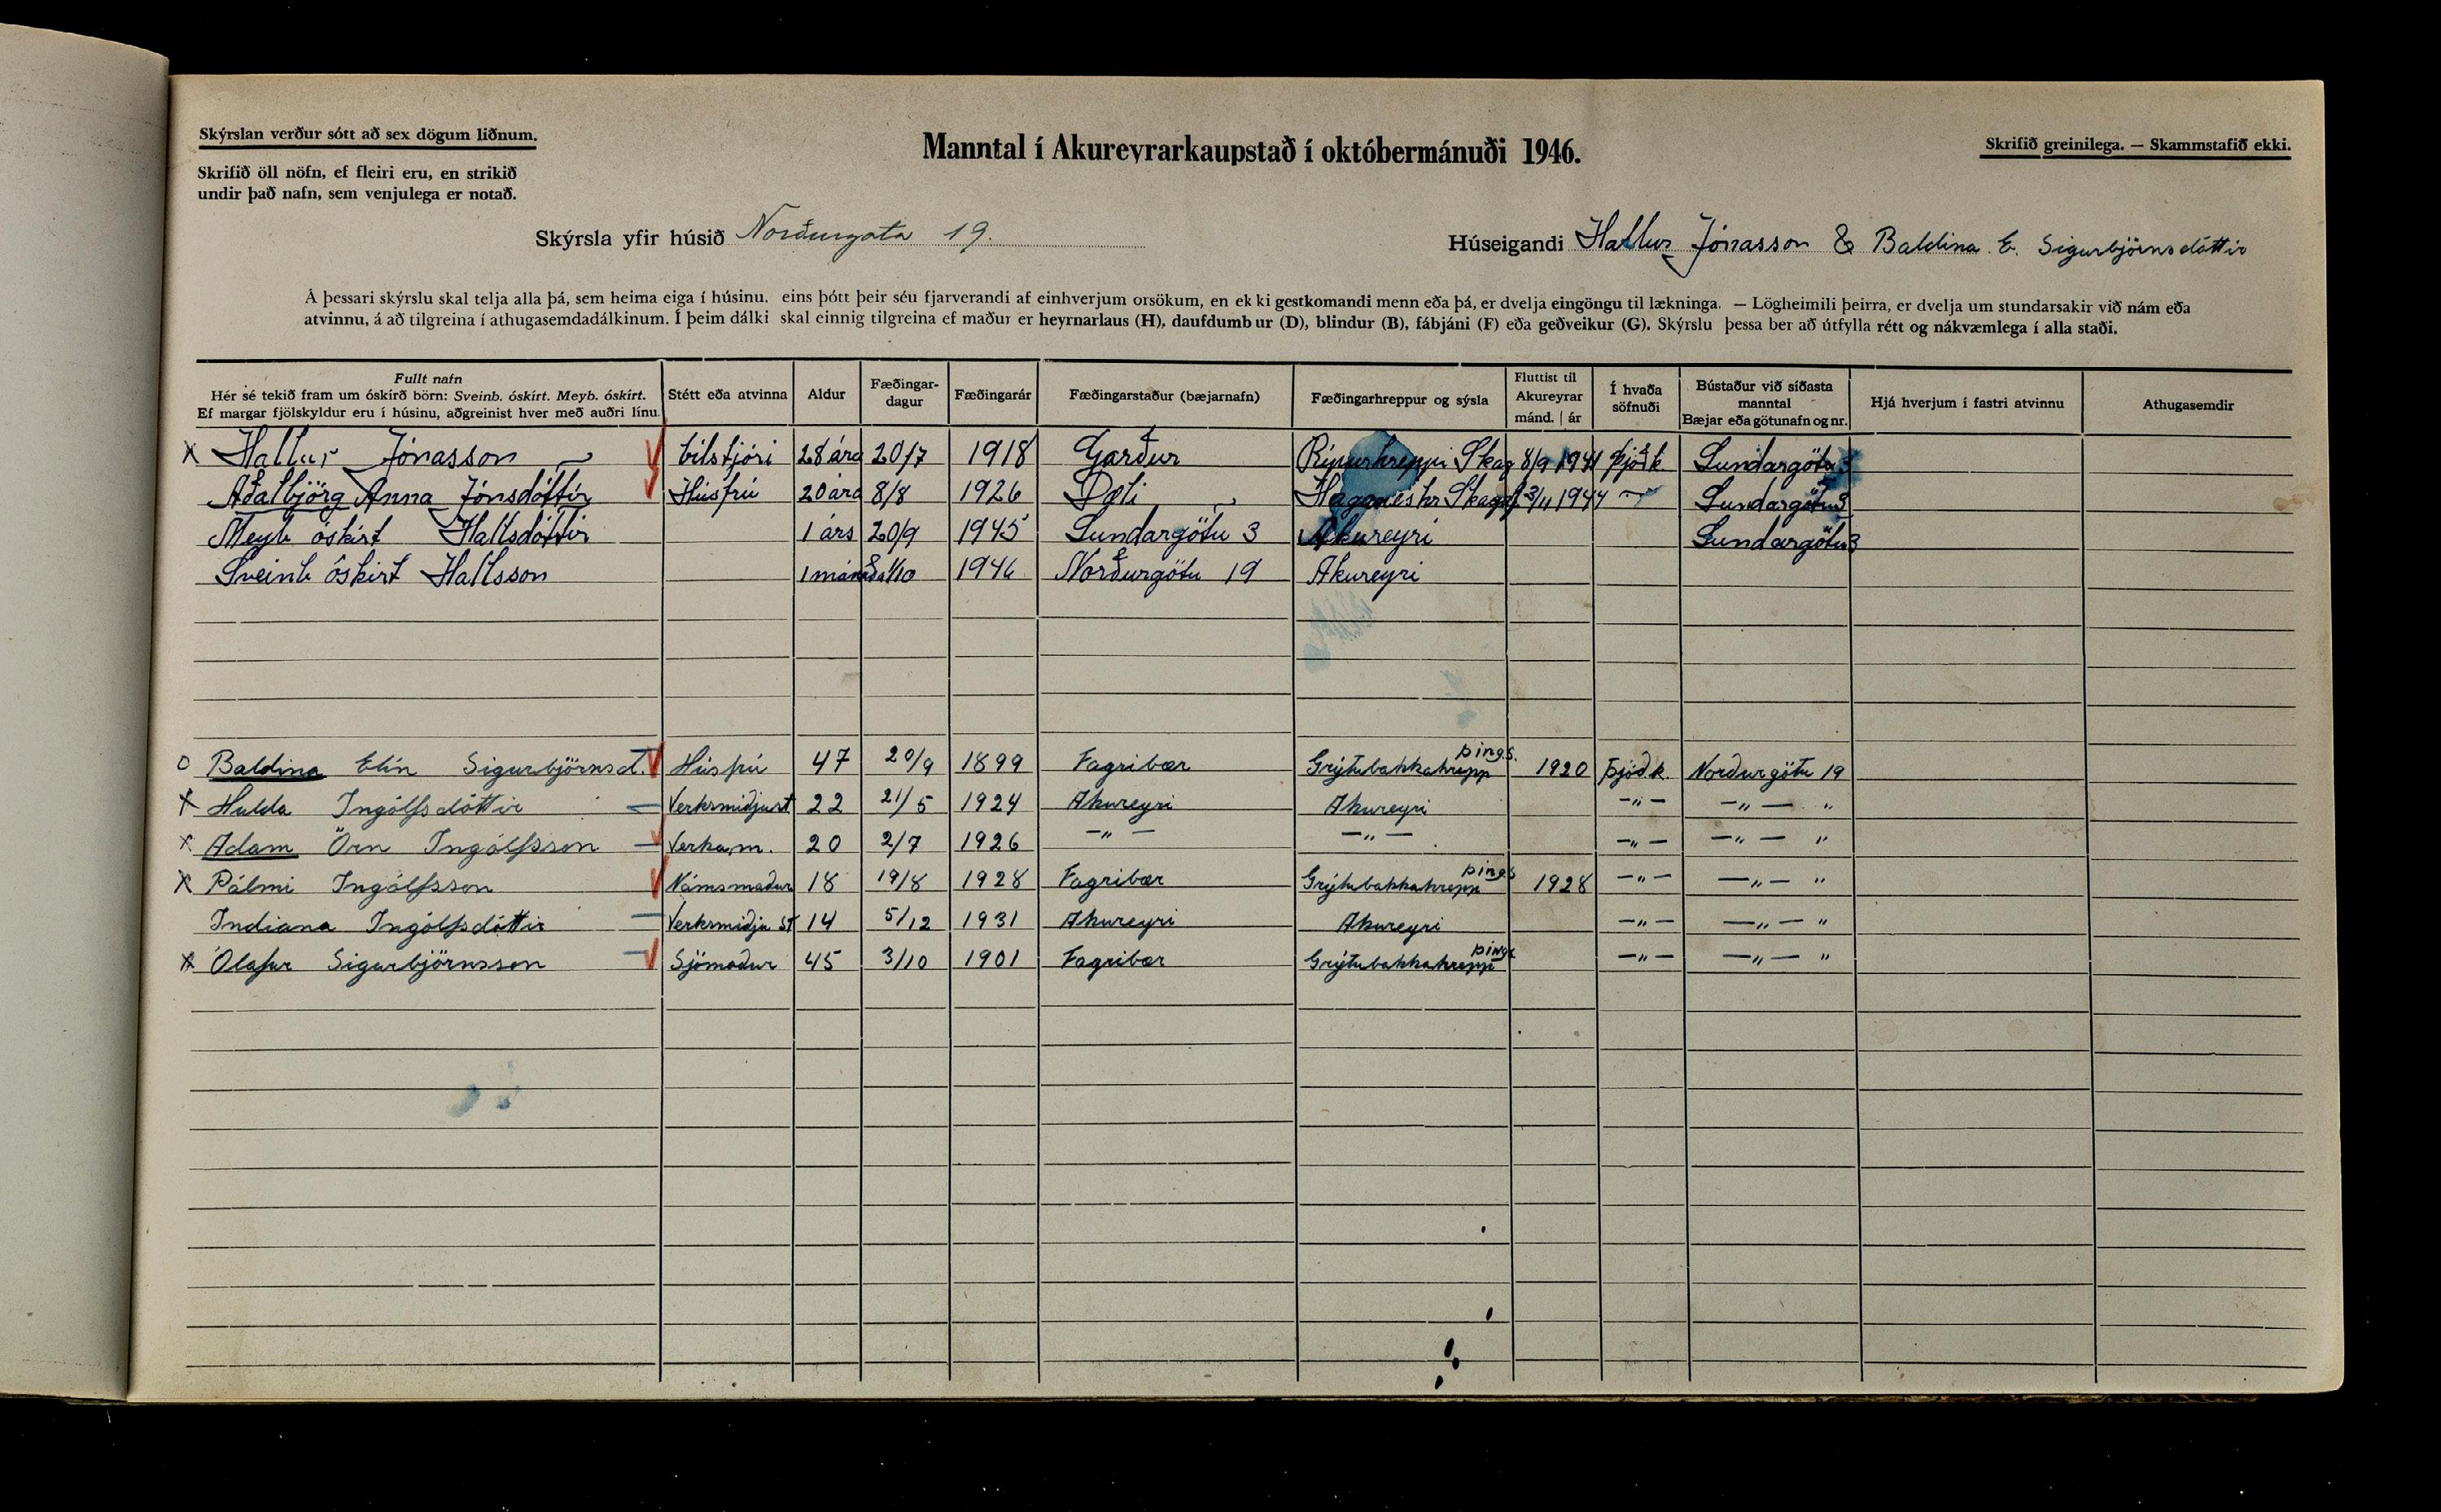 Skýrslan verður sótt að sex dögum liðnum.
Skrifið öll nöfn, ef fleiri eru, en strikið
undir það nafn, sem venjulega er notað.
Manntal í Akureyrarkaupstað í októbermánuði 1946.
Skrifið greinilega. — Skammstafið ekki.
Skýrsla yfir húsið Norðurgata 19.
Húseigandi Hallur Jónasson & Baldina E. Sigurbjörnsdóttir
Á þessari skýrslu skal telja alla þá, sem heima eiga í húsinu, eins þótt þeir séu fjarverandi af einhverjum orsökum, en ekki gestkomandi menn eða þá, er dvelja eingöngu til lækninga. — Lögheimili þeirra, er dvelja um stundarsakir við nám eða
atvinnu, á að tilgreina í athugasemdadálkinum. Í þeim dálki skal einnig tilgreina ef maður er heyrnarlaus (H), daufdumbur (D), blindur (B), fábjáni (F) eða geðveikur (G). Skýrslu þessa ber að útfylla rétt og nákvæmlega í alla staði.
Fullt nafn
Hér sé tekið fram um óskírð börn: Sveinb. óskírt. Meyb. óskírt.
Ef margar fjölskyldur eru í húsinu, aðgreinist hver með auðri línu.
Stétt eða atvinna
Aldur
Fæðingar-
dagur
Fæðingarár
Fæðingarstaður (bæjarnafn)
Fæðingarhreppur og sýsla
Fluttist til
Akureyrar
mánd. | ár
Í hvaða
söfnuði
Bústaður við síðasta
manntal
Bæjar eða götunafn og nr.
Hjá hverjum í fastri atvinnu
Athugasemdir
x Hallur Jónasson bílstjóri 28 ára 20/7 1918 Garður Rípurhreppi Skag 8/9 1941 þjóðk Lundargötu 3
Aðalbjörg Anna Jónsdóttir Húsfrú 20 ára 8/8 1926 Dæli Haganeshr Skagf. 3/11 1944 — Lundargötu 3
Meyb óskírt Hallsdóttir 1 árs 20/9 1945 Lundargötu 3 Akureyri Lundargötu 3
Sveinb óskírt Hallsson 1 mánaða 1/10 1946 Norðurgötu 19 Akureyri
o Baldina Elín Sigurbjörnsd. Húsfrú 47 20/9 1899 Fagribær Grýtubakkahrepp þings. 1920 þjóðk. Norðurgötu 19
x Hulda Ingólfsdóttir Verksmiðjust 22 21/5 1924 Akureyri Akureyri —"— —"— "
x Adam Örn Ingólfsson Verkam. 20 2/7 1926 —"— —"— —"— —"— "
x Pálmi Ingólfsson Námsmaður 18 19/8 1928 Fagribær Grýtubakkahrepp þings 1928 —"— —"— "
Indiana Ingólfsdóttir Verksmiðju st 14 5/12 1931 Akureyri Akureyri —"— —"— "
x Ólafur Sigurbjörnsson Sjómaður 45 3/10 1901 Fagribær Grýtubakkahrepp þings —"— —"— "